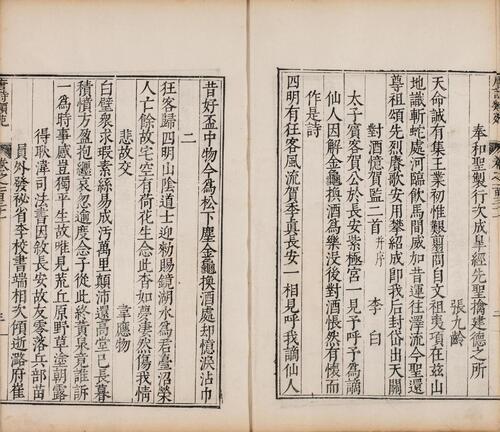 奉和聖製行次成皋經先聖擒建德之所
張九齡
天命誠有集王業初惟艱翦商自文祖夷項在茲山
地識斬蛇處河臨飲馬間威加昔運往澤流今聖還
尊祖頌先烈賡歌安用攀紹成即我后封岱出天關
對酒憶賀監二首 并序 李白
太子賓客賀公於長安紫極宮一見予呼予為謫
仙人因解金龜換酒為樂沒後對酒悵然有懷而
作是詩
四明有狂客風流賀季真長安一相見呼我謫仙人
昔好盃中物今為松下塵金龜換酒處却憶淚沾巾
二
狂客歸四明山陰道士迎勑賜鏡湖水為君臺沼榮
人亡餘故宅空有荷花生念此杳如夢凄然傷我情
悲故交 韋應物
白璧衆求瑕素絲易成汚萬里顛沛還高堂已長暮
積憤方盈抱纏哀忽逾度念子從此終黃泉竟誰訴
一為時事感豈獨平生故唯見荒丘原野草塗朝露
得耿湋司法書因敘長安故友零落兵部苗
員外發秘省李校書端相次傾逝潞府崔